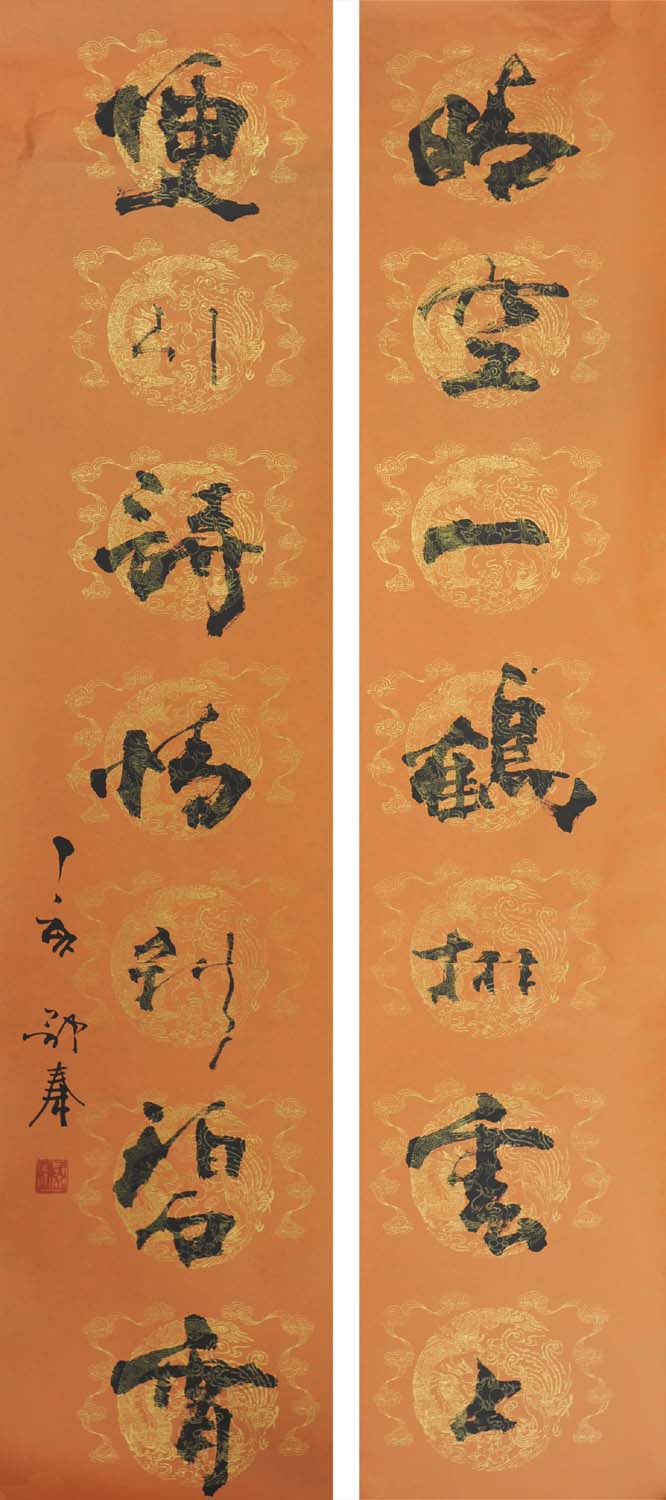 晴空一鶴排雲上
便引詩情到碧霄
丁亥